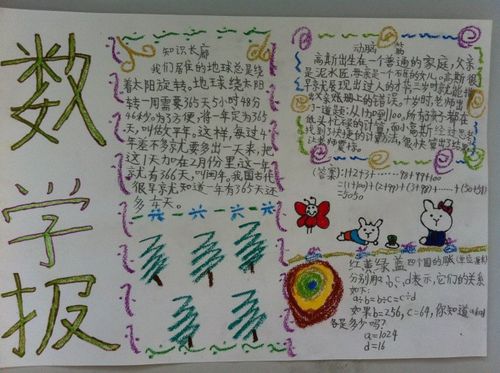 数学报
知识长廊
我们居住的地球总是绕
着太阳旋转。地球绕太阳
转一周需要365天5小时48分
46秒。为了方便，将一年定为365
天，叫做平年。这样，每过4
年差不多就要多出一天来，把
这1天加在2月份里，这一年
就有366天，叫闰年。我国古代
很早就知道一年有365天还
多有天。
一六一六一六一
动脑篇
高斯出生在一个普通的家庭，父亲
是泥水匠，
早就展现出过人的才华三岁时就能指
出父亲账册上的错误。十岁时，老师出
了道题：从1加到100，所有孩子都在
低头忙碌的计算，而小高斯经过思考
找到了快捷的计算方法，很快算出了结果
让老师震惊。
(答案)：1+2+3+……98+99+100
=(1+100)+(2+99)+(3+98)+……+(50+51)
=5050
红黄绿蓝四个圆的
分别用a、b、c、d表示，它们的关系
如下：
a÷b=b÷c=c÷d
如果b=256，c=64，你知道a和d
各是多少吗？
a=1024
d=16